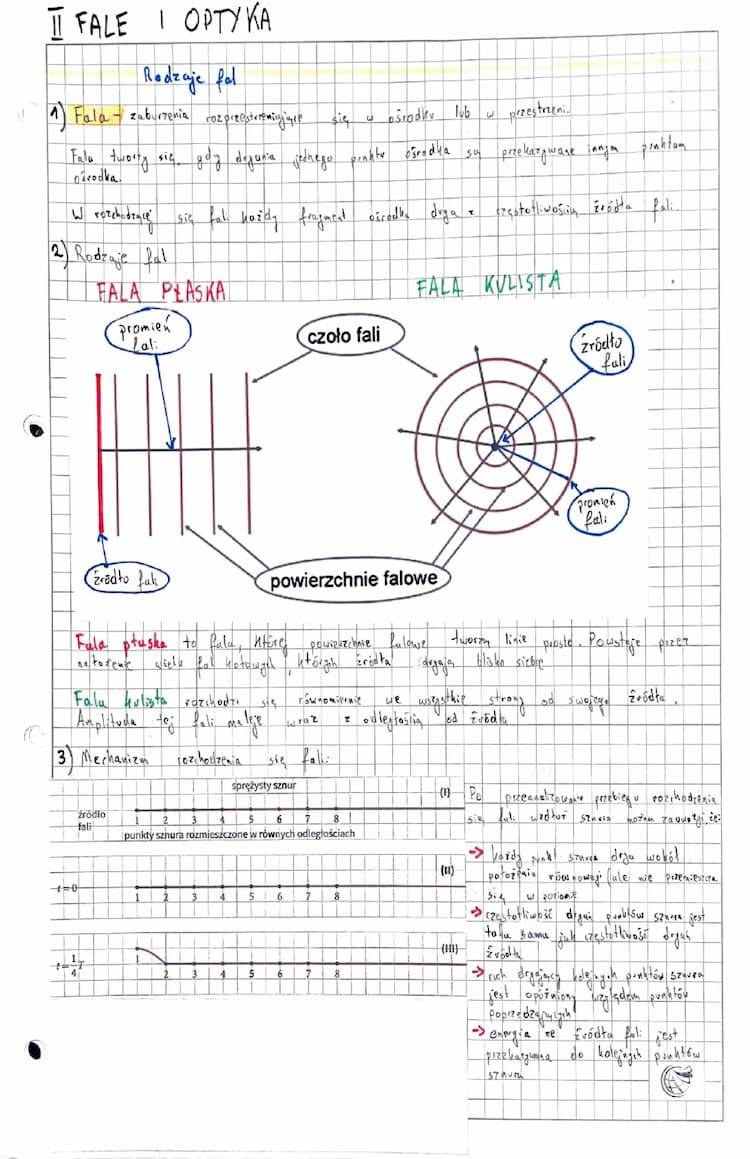 II FALE I OPTYKA
Rodzaje fal
1) Fala - zaburzenia rozprzestrzeniające się w ośrodku lub w przestrzeni.
Fala tworzy się, gdy drgania jednego punktu ośrodka są przekazywane innym punktom
ośrodka.
W rozchodzącej się fali każdy fragment ośrodka drga z częstotliwością źródła fali.
2) Rodzaje fal
FALA PŁASKA
FALA KULISTA
promień
fali
czoło fali
źródło
fali
promień
fali
źródło fali
powierzchnie falowe
Fala płaska to fala, której powierzchnie falowe tworzą linie proste. Powstaje przez
nałożenie wielu fal kołowych, których źródła drgają blisko siebie
Fala kulista rozchodzi się równomiernie we wszystkie strony od swojego źródła.
Amplituda tej fali maleje wraz z odległością od źródła
3) Mechanizm rozchodzenia się fali:
sprężysty sznur
(I)
źródło
fali
1 2 3 4 5 6 7 8
punkty sznura rozmieszczone w równych odległościach
(II)
t=0
1 2 3 4 5 6 7 8
(III)
t=1/4T
1 2 3 4 5 6 7 8
Po przeanalizowaniu przebiegu rozchodzenia
się fali wzdłuż sznura można zauważyć, że:
→ każdy punkt sznura drga wokół
położenia równowagi (ale nie przemieszcza
się w poziomie
→ częstotliwość drgań punktów sznura jest
taka sama jak częstotliwość drgań
źródła
→ ruch drgający kolejnych punktów sznura
jest opóźniony względem punktów
poprzedzających
→ energia ze źródła fali jest
przekazywana do kolejnych punktów
sznura